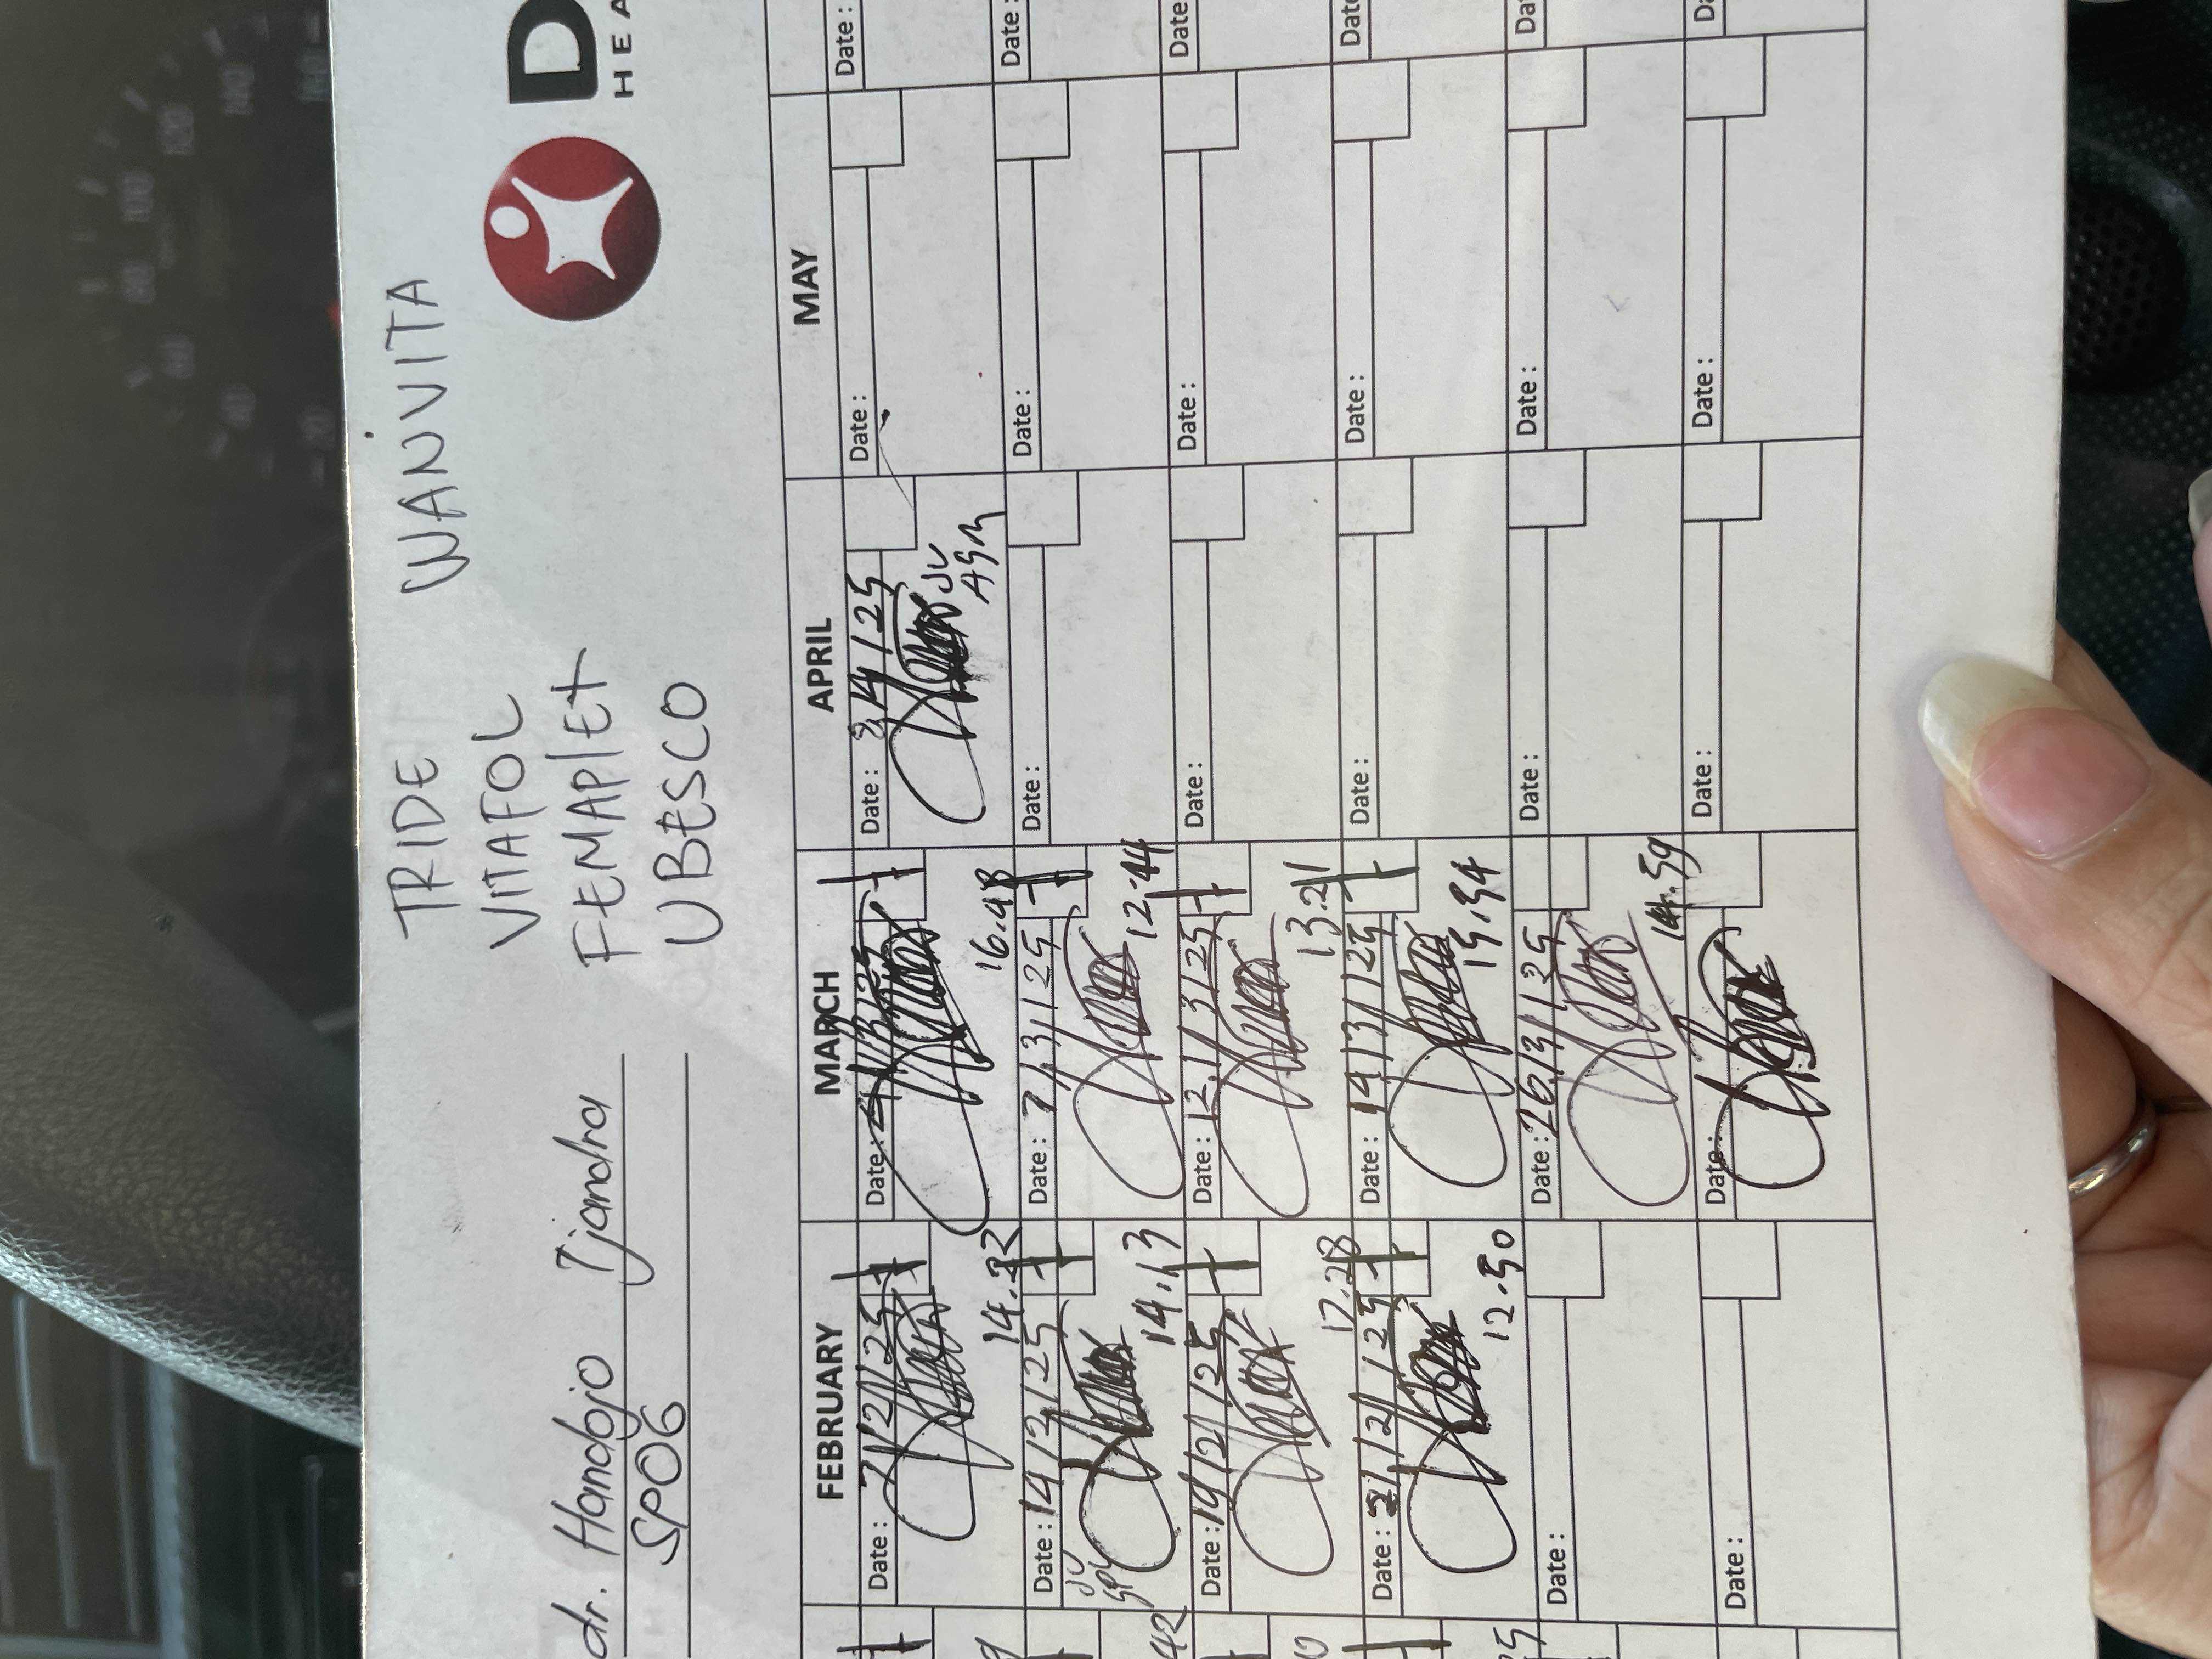 TRIDE WANVITA
VITAFOL
FEMAPLEX
UBESCO
dr. Handojo Tjandra
SPOG
D
HEA
FEBRUARY MARCH APRIL MAY
Date : 7/2/25
14.22
Date : 14/2/25
JV
SPV
14.13
Date : 19/2/25
12.28
Date : 21/2/25
12.50
Date :
Date :
Date : 4/3/25
16.48
Date : 7/3/25
12.44
Date : 12/3/25
13.21
Date : 14/3/25
15.54
Date : 26/3/25
14.59
Date :
Date : 3/4/25
JV
ASM
Date :
Date :
Date :
Date :
Date :
Date :
Date :
Date :
Date :
Date :
Date :
Date :
Date :
Date
Date
Da
Da
42